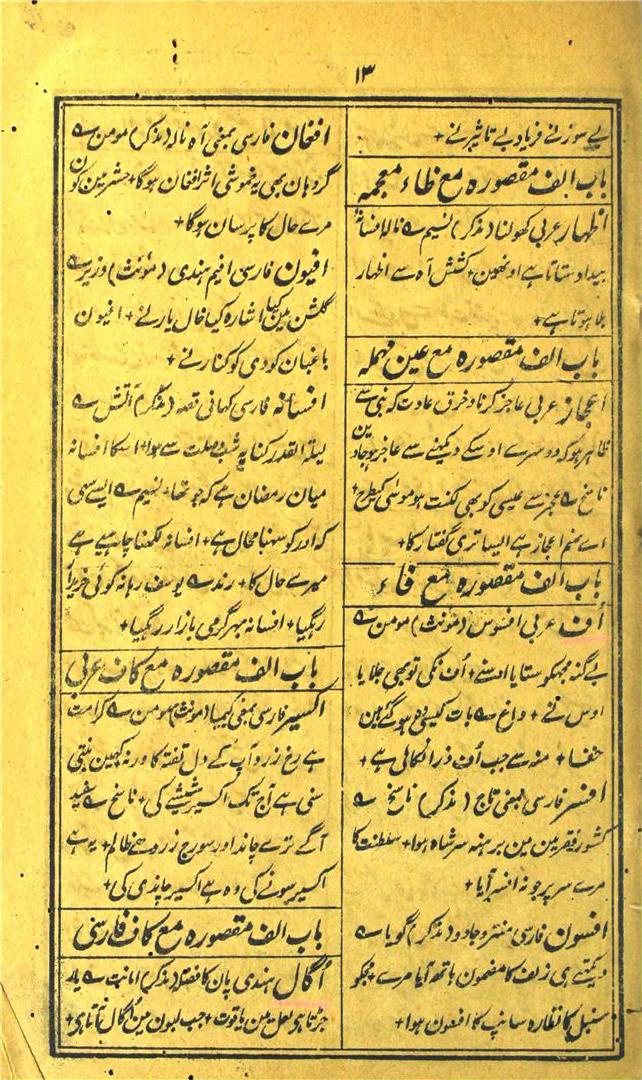 ۱۳
بے سوزنے فریاد بے تاثیرنے +
باب الف مقصورہ مع ظاء معجمہ
اظہار عربی کھولنا (مذکر) نسیم ے نالہ افسانۂ
بیداد سناتا ہے اونھین + کشش آہ سے اظہار
بلا ہوتا ہے +
باب الف مقصورہ مع عین مہملہ
اعجاز عربی عاجز کرنا و خرق عادت کہ نبی سے
ظاہر ہو کہ دوسرے اوسکے دیکھنے سے عاجز ہو جاوین
ناسخ ے عجز سے عیسی کو بھی لکنت ہو موسی کیطرح +
اے صنم اعجاز ہے ایسا تری گفتار کا +
باب الف مقصورہ مع فاء
اُف عربی افسوس (مونث) مومن ے
بے گنہ مجھکو ستایا اوسنے + اُف نکی تو بھی جلایا
اوس نے + داغ ے بات کیسی وہ ہو گئے ہین
خفا + منہ سے جب اُف ذرا نکالی ہے +
افسر فارسی بمعنی تاج (مذکر) ناسخ ے
کشور فقر مین مین برہنہ سر شاہ ہوا + سلطنت کا
مرے سر پر جو نہ افسر آیا +
افسون فارسی منتر و جادو (مذکر) گویا ے
دیکھتے ہی زلف کا مضمون ہاتھ آیا مرے + مجکو
سنبل کا نظارہ سانپ کا افسون ہوا +
افغان فارسی بمعنی آہ نالہ (مذکر) مومن ے
گر وہان بھی یہ خموشی اثر افغان ہوگا + حشر مین کون
مرے حال کا پرسان ہوگا +
افیون فارسی افیم ہندی (مونث) وزیر ے
گلشن مین کیا اشارہ کیا خال یار نے + افیون
باغبان کو دی کوکنار نے +
افسانہ فارسی کہانی قصہ (مذکر) آتش ے
لیلۃ القدر کنایہ شب وصلت سے ہوا + اسکا افسانہ
میان رمضان ہے کہ جو تھا + نسیم ے ایسے سہی
کہ ادر کو سہنا محال ہے + افسانہ لکھنا چاہیے ہے
میرے حال کا + رند ے یوسف رہا نہ کوئی خریدار
رہگیا + افسانہ بہر گرمی بازار رہگیا +
باب الف مقصورہ مع کاف عربی
اکسیر فارسی بمعنی کیمیا (مونث) مومن ے کرامت
ہے رخ زرد آپ کے دل تفتہ کا ورنہ کہین بنتی
سنی ہے آج تک اکسیر شیشے کی + ناسخ ے سفید
آگے ترے چاند اور سورج زرد ہے ظالم + یہ ہے
اکسیر سونے کی وہ ہے اکسیر چاندی کی +
باب الف مقصورہ مع کاف فارسی
اُگال ہندی پان کا فضلہ (مذکر) امانت ے
جڑتا ہی لعل مین یاقوت + جب لبون مین اگال آتا ہی +